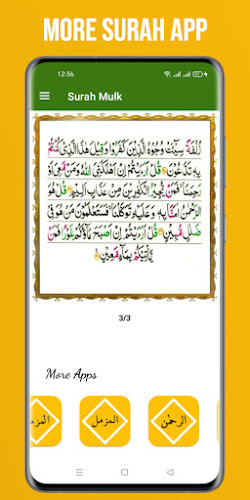 MORE SURAH APP
12:56
Surah Mulk
زُلْفَةً سِيْٓـَٔتْ وُجُوْهُ الَّذِيْنَ كَفَرُوْا وَقِيْلَ هٰذَا الَّذِيْ كُنْتُمْ
بِهٖ تَدَّعُوْنَ قُلْ اَرَءَيْتُمْ اِنْ اَهْلَكَنِيَ اللّٰهُ وَمَنْ مَّعِيَ اَوْ
رَحِمَنَا فَمَنْ يُّجِيْرُ الْكٰفِرِيْنَ مِنْ عَذَابٍ اَلِيْمٍ قُلْ هُوَ
الرَّحْمٰنُ اٰمَنَّا بِهٖ وَعَلَيْهِ تَوَكَّلْنَا فَسَتَعْلَمُوْنَ مَنْ هُوَ فِيْ
ضَلٰلٍ مُّبِيْنٍ قُلْ اَرَءَيْتُمْ اِنْ اَصْبَحَ مَآؤُكُمْ غَوْرًا فَمَنْ
يَّاْتِيْكُمْ بِمَآءٍ مَّعِيْنٍ
3/3
More Apps
المزمل
الرحمٰن